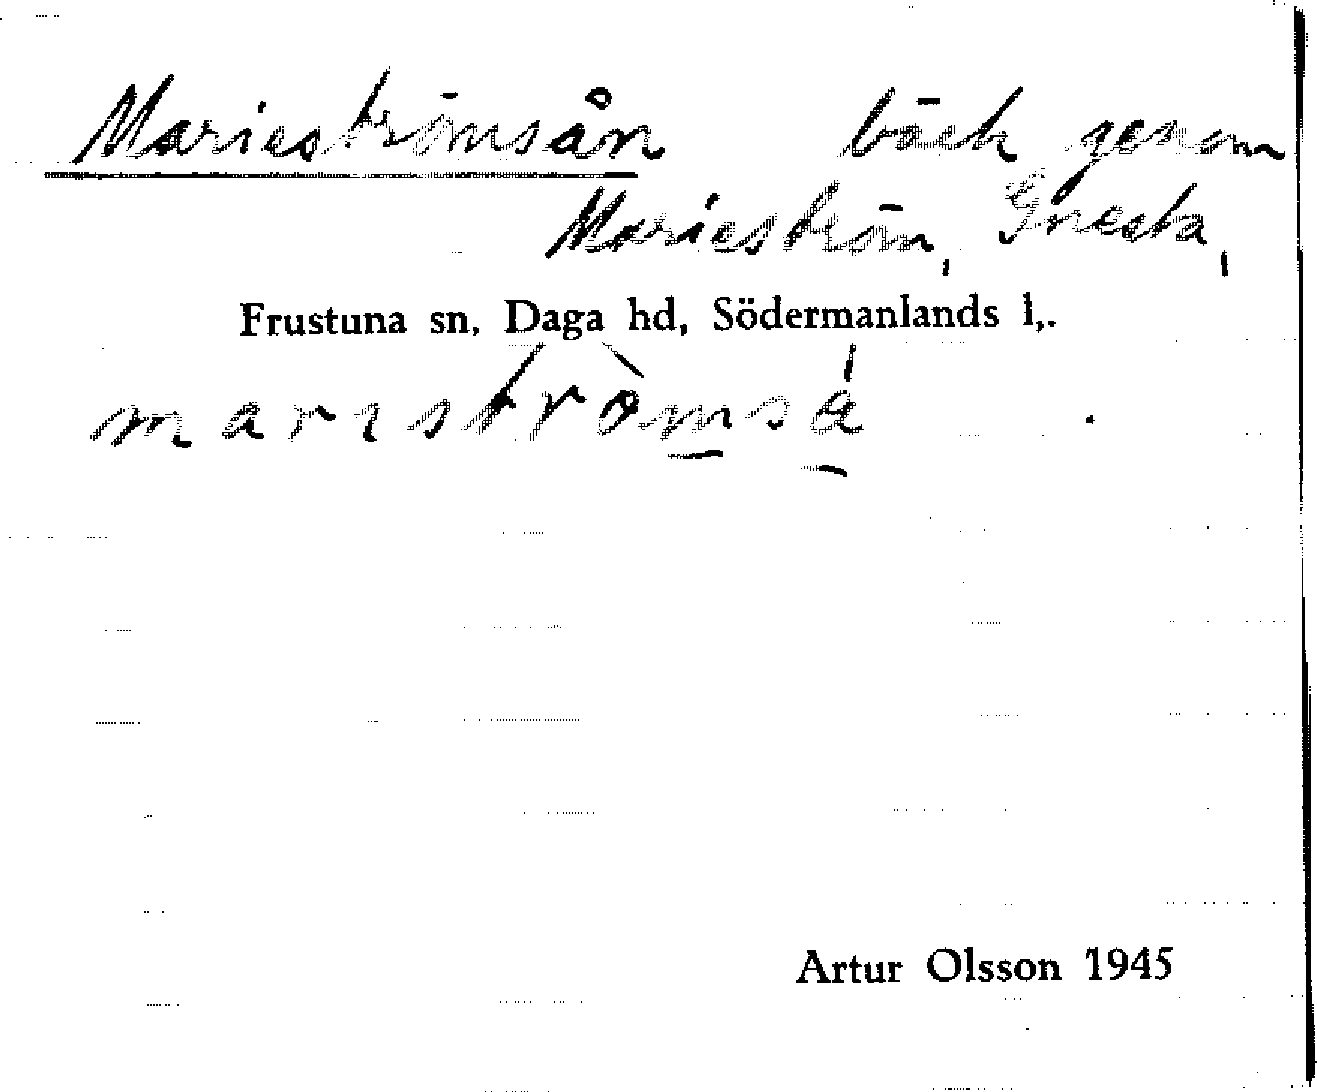 Marieströmsån bäck genom
Marieström, Gnesta,
Frustuna sn, Daga hd, Södermanlands l,.
mariströmså
Artur Olsson 1945